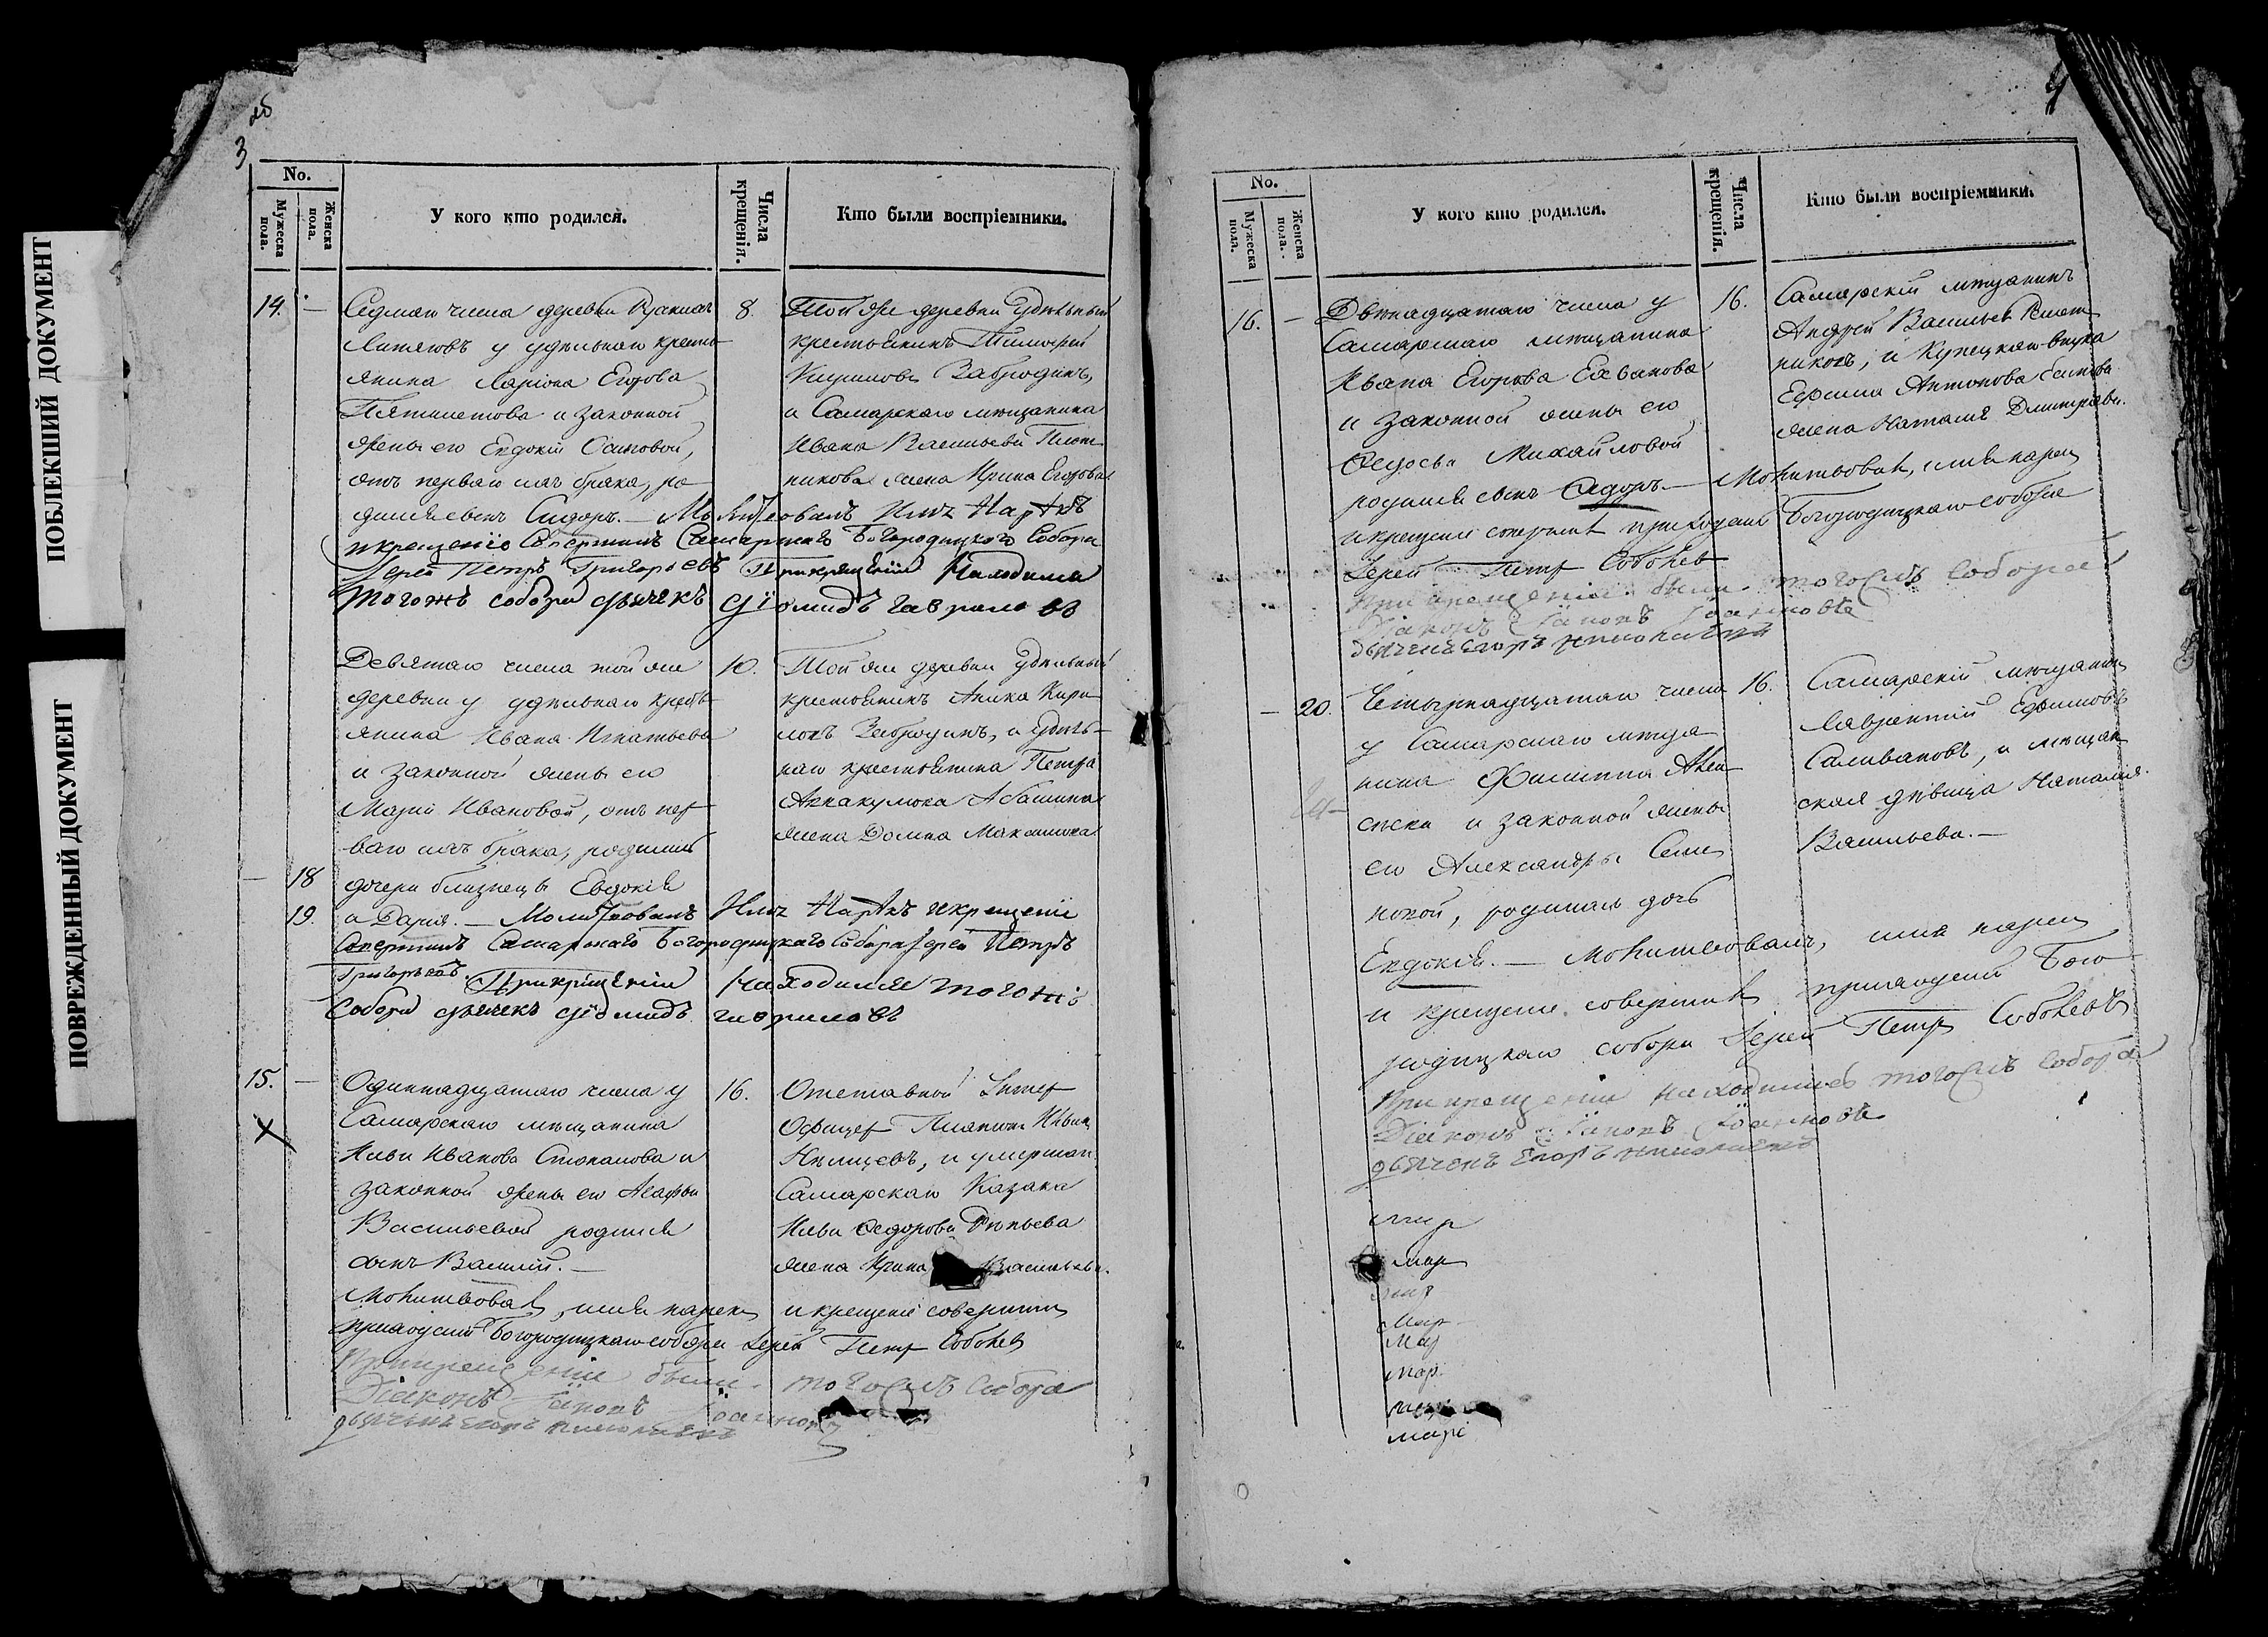 ПОБЛЕКШИЙ ДОКУМЕНТ
ПОВРЕЖДЕННЫЙ ДОКУМЕНТ
3
об
No.
Мужеска пола.
Женска пола.
У кого кто родился.
Числа крещенія.
Кто были воспріемники.
14.
—
Седмаго числа деревни
у удѣльнаго кресть-
янина Ларіона Егорова
и законной
жены его Евдокіи Осиповой,
отъ перваго ихъ брака, ро-
дился сынъ Сидоръ. — Молитвовалъ Имя Нарекъ
и крещеніе Совершилъ Самарскаго Богородицкаго Собора
Іерей Петръ Григорьевъ При крещеніи Находился
тогожъ собора дьячекъ Діомидъ Гавриловъ
8.
Той же деревни Удѣльный
крестьянинъ Тимофей
Кириловъ Забродинъ,
и Самарскаго мѣщанина
Ивана Васильева Плот-
никова жена Ирина Егорова
Девятаго числа той же
деревни у удѣльнаго кресть-
янина Ивана Игнатьева
и законной жены его
Маріи Ивановой, отъ пер-
ваго ихъ брака, родились
— 18
дочери близнецы Евдокія
19.
и Дарья. — Молитвовалъ Имя Нарекъ и крещеніе
Совершилъ Самарскаго Богородицкаго Собора Іерей Петръ
Григорьевъ. При крещеніи Находился тогожъ
Собора дьячекъ Діомидъ Гавриловъ
10.
Той же деревни Удѣльный
крестьянинъ Аника Кири-
ловъ Забродинъ, и удѣль-
наго крестьянина Петра
Аввакумова Абашина
жена Домна Максимова
15.
—
Одиннадцатаго числа у
Самарскаго мѣщанина
Ильи Иванова Степанова и
законной жены его Агафьи
Васильевой родился
сынъ Василій. —
Молитвовалъ, имя нарекъ и крещеніе совершилъ
приходскій Богородицкаго собора Іерей Петръ Соболевъ
При крещеніи были тогожъ Собора
Діаконъ Іаковъ Іоанновъ
дьячекъ Егоръ
16.
Отставной Унтер
Офицер
и умершаго
Самарскаго Казака
Ильи Федорова
жена Ирина Васильева.
No.
Мужеска пола.
Женска пола.
У кого кто родился.
Числа крещенія.
Кто были воспріемники.
16.
—
Двѣнадцатаго числа у
Самарскаго мѣщанина
Ивана Егорова
и законной жены его
Федосьи Михайловой
родился сынъ Сидоръ. — Молитвовалъ, имя нарекъ
и крещеніе совершилъ приходскій Богородицкаго собора
Іерей Петр Соболев
При крещеніи были тогожъ Собора
Діаконъ Іаковъ Іоанновъ
дьячекъ Егоръ
16.
Самарскій мѣщанинъ
Андрей Васильев Плот-
никовъ, и Купецкаго внука
Ефима Антонова
жена Наталья Дмитріева.
— 20.
Четырнадцатаго числа
у Самарскаго мѣща-
нина Филиппа Алек-
сѣева и законной жены
его Александры Семе-
новой, родилась дочь
Евдокія. — Молитвовалъ, имя нарекъ
и крещеніе совершилъ приходскій Бого-
родицкаго собора Іерей Петръ Соболевъ
При крещеніи находились тогожъ Собора
Діаконъ Іаковъ Іоанновъ
дьячекъ Егоръ
16.
Самарскій мѣщанин
Лаврентій Ефимовъ
Саливановъ, и мѣщан-
ская дѣвица Наталія
Васильева. —
мар
мар
мар
мар
мар.